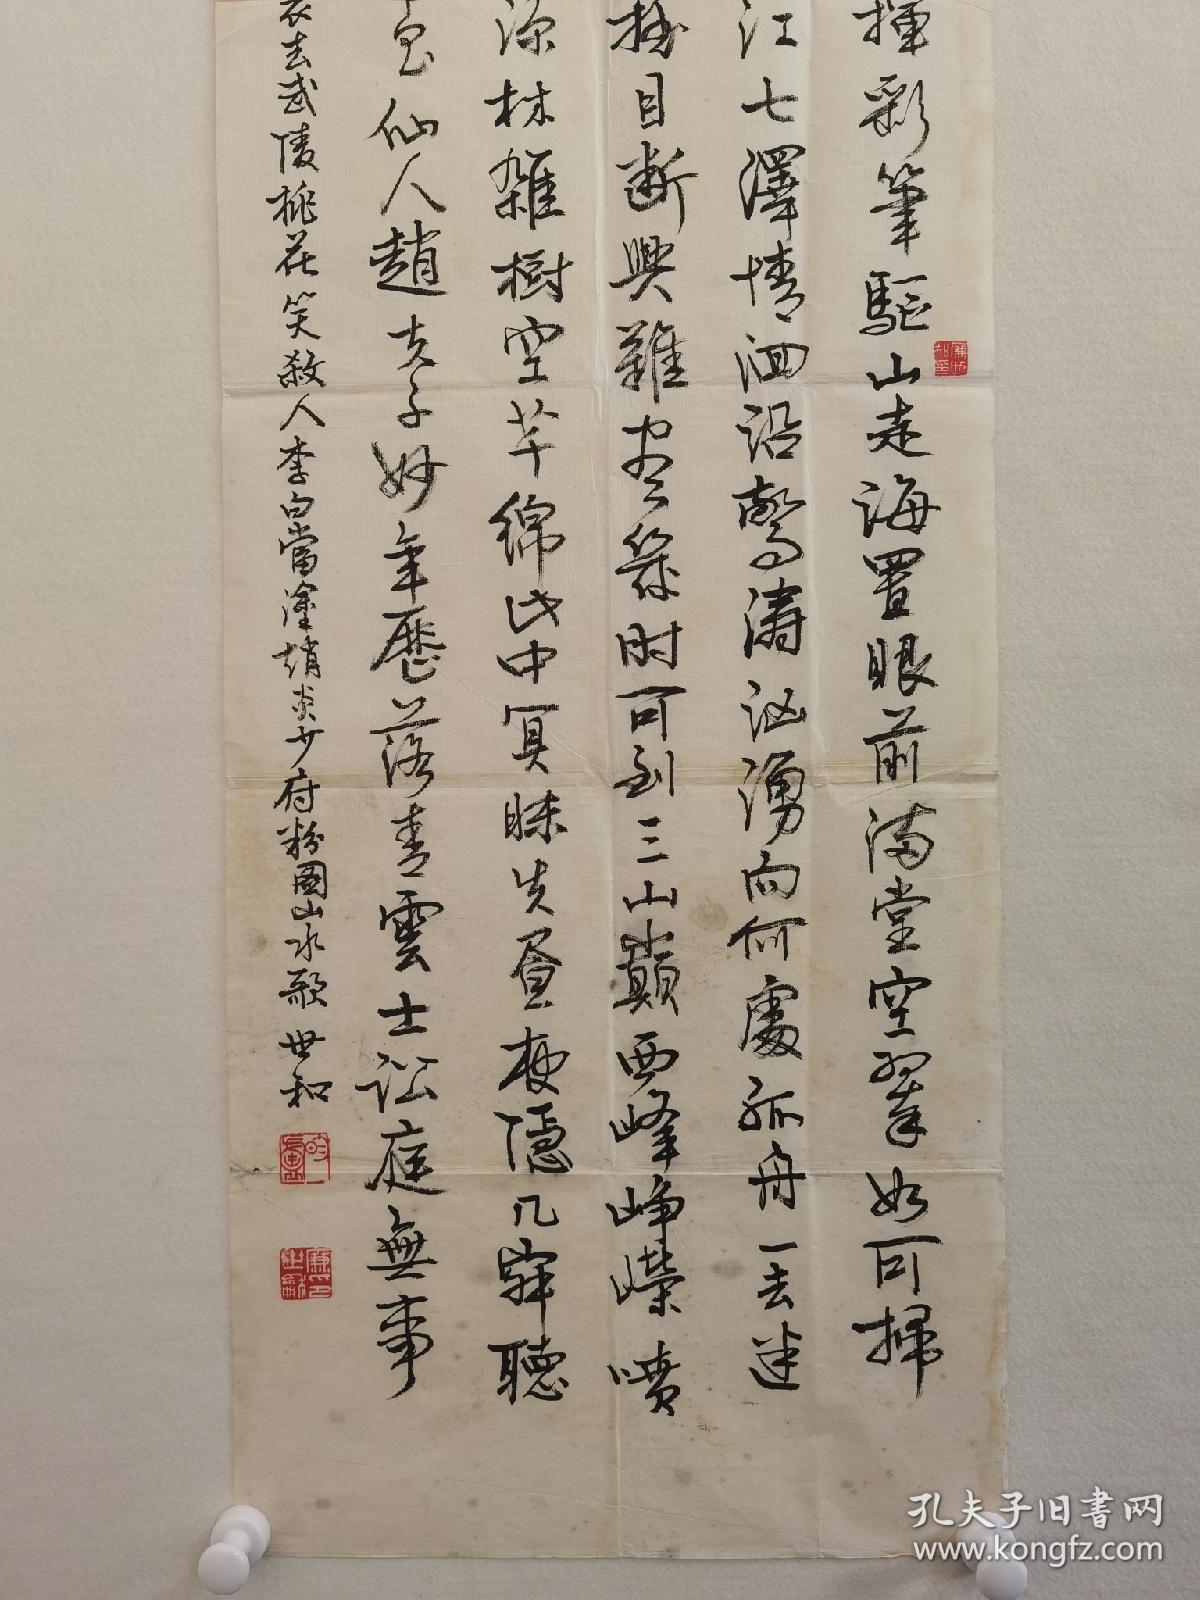 揮彩筆驅山走海置眼前滿堂空翠如可掃
江七澤情洄沿驚濤洶湧向何處孤舟一去迷
搖目斷興難盡幾時可到三山巔西峰崢嶸噴
深林雜樹空芊綿此中冥昧失晝夜隱几寂聽
仙人趙夫子妙年歷落青雲士訟庭無事
衣去武陵桃花笑殺人李白當塗趙炎少府粉圖山水歌世和
孔夫子旧书网
www.kongfz.com